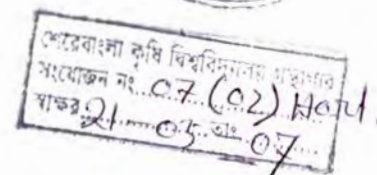 শেরেবাংলা কৃষি বিশ্ববিদ্যালয় গ্রন্থাগার
সংযোজন নং 07 (02) Hort.
স্বাক্ষর 21-05 তাং 07